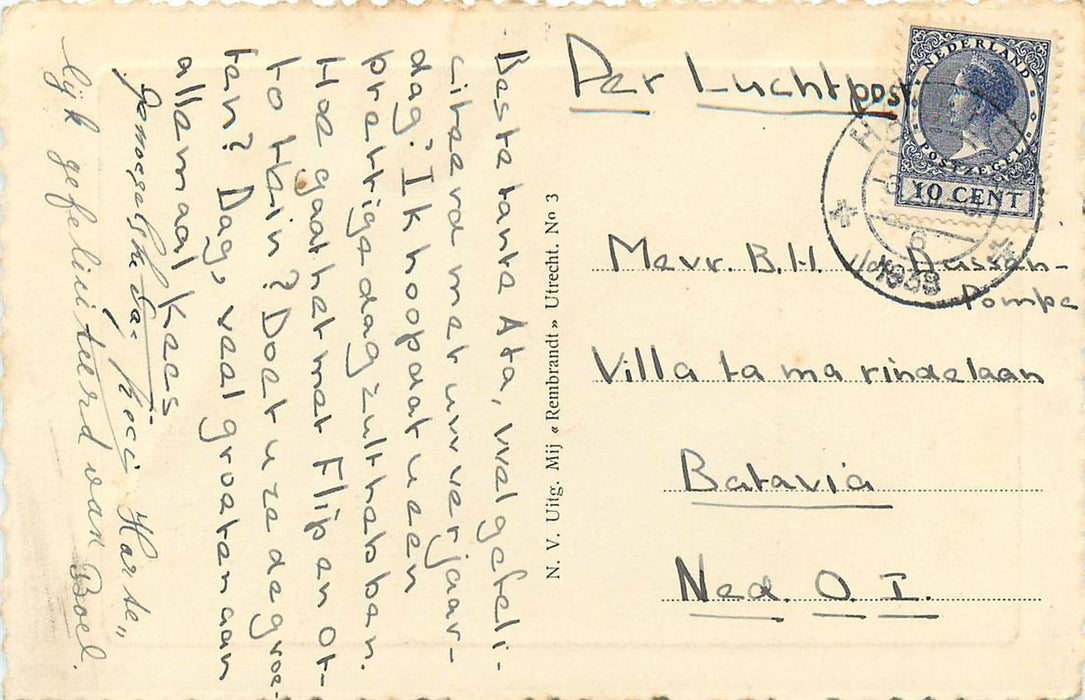 Per Luchtpost
NEDERLAND
POSTZEGEL
10 CENT
1938
Mevr. B.H. Bussen-
Pompe
Villa tamarindelaan
Batavia
Ned. O. I.
N. V. Uitg. Mij «Rembrandt» Utrecht. No 3
Beste tante Ata, wel gefeli-
citeerd met uw verjaar-
dag? Ik hoop dat u een
prettige dag zult hebben.
Hoe gaat het met Flip en Or-
to Hein? Doet u ze de groe-
ten? Dag, veel groeten aan
allemaal Kees
Harte
lijk gefeliciteerd van Boel.